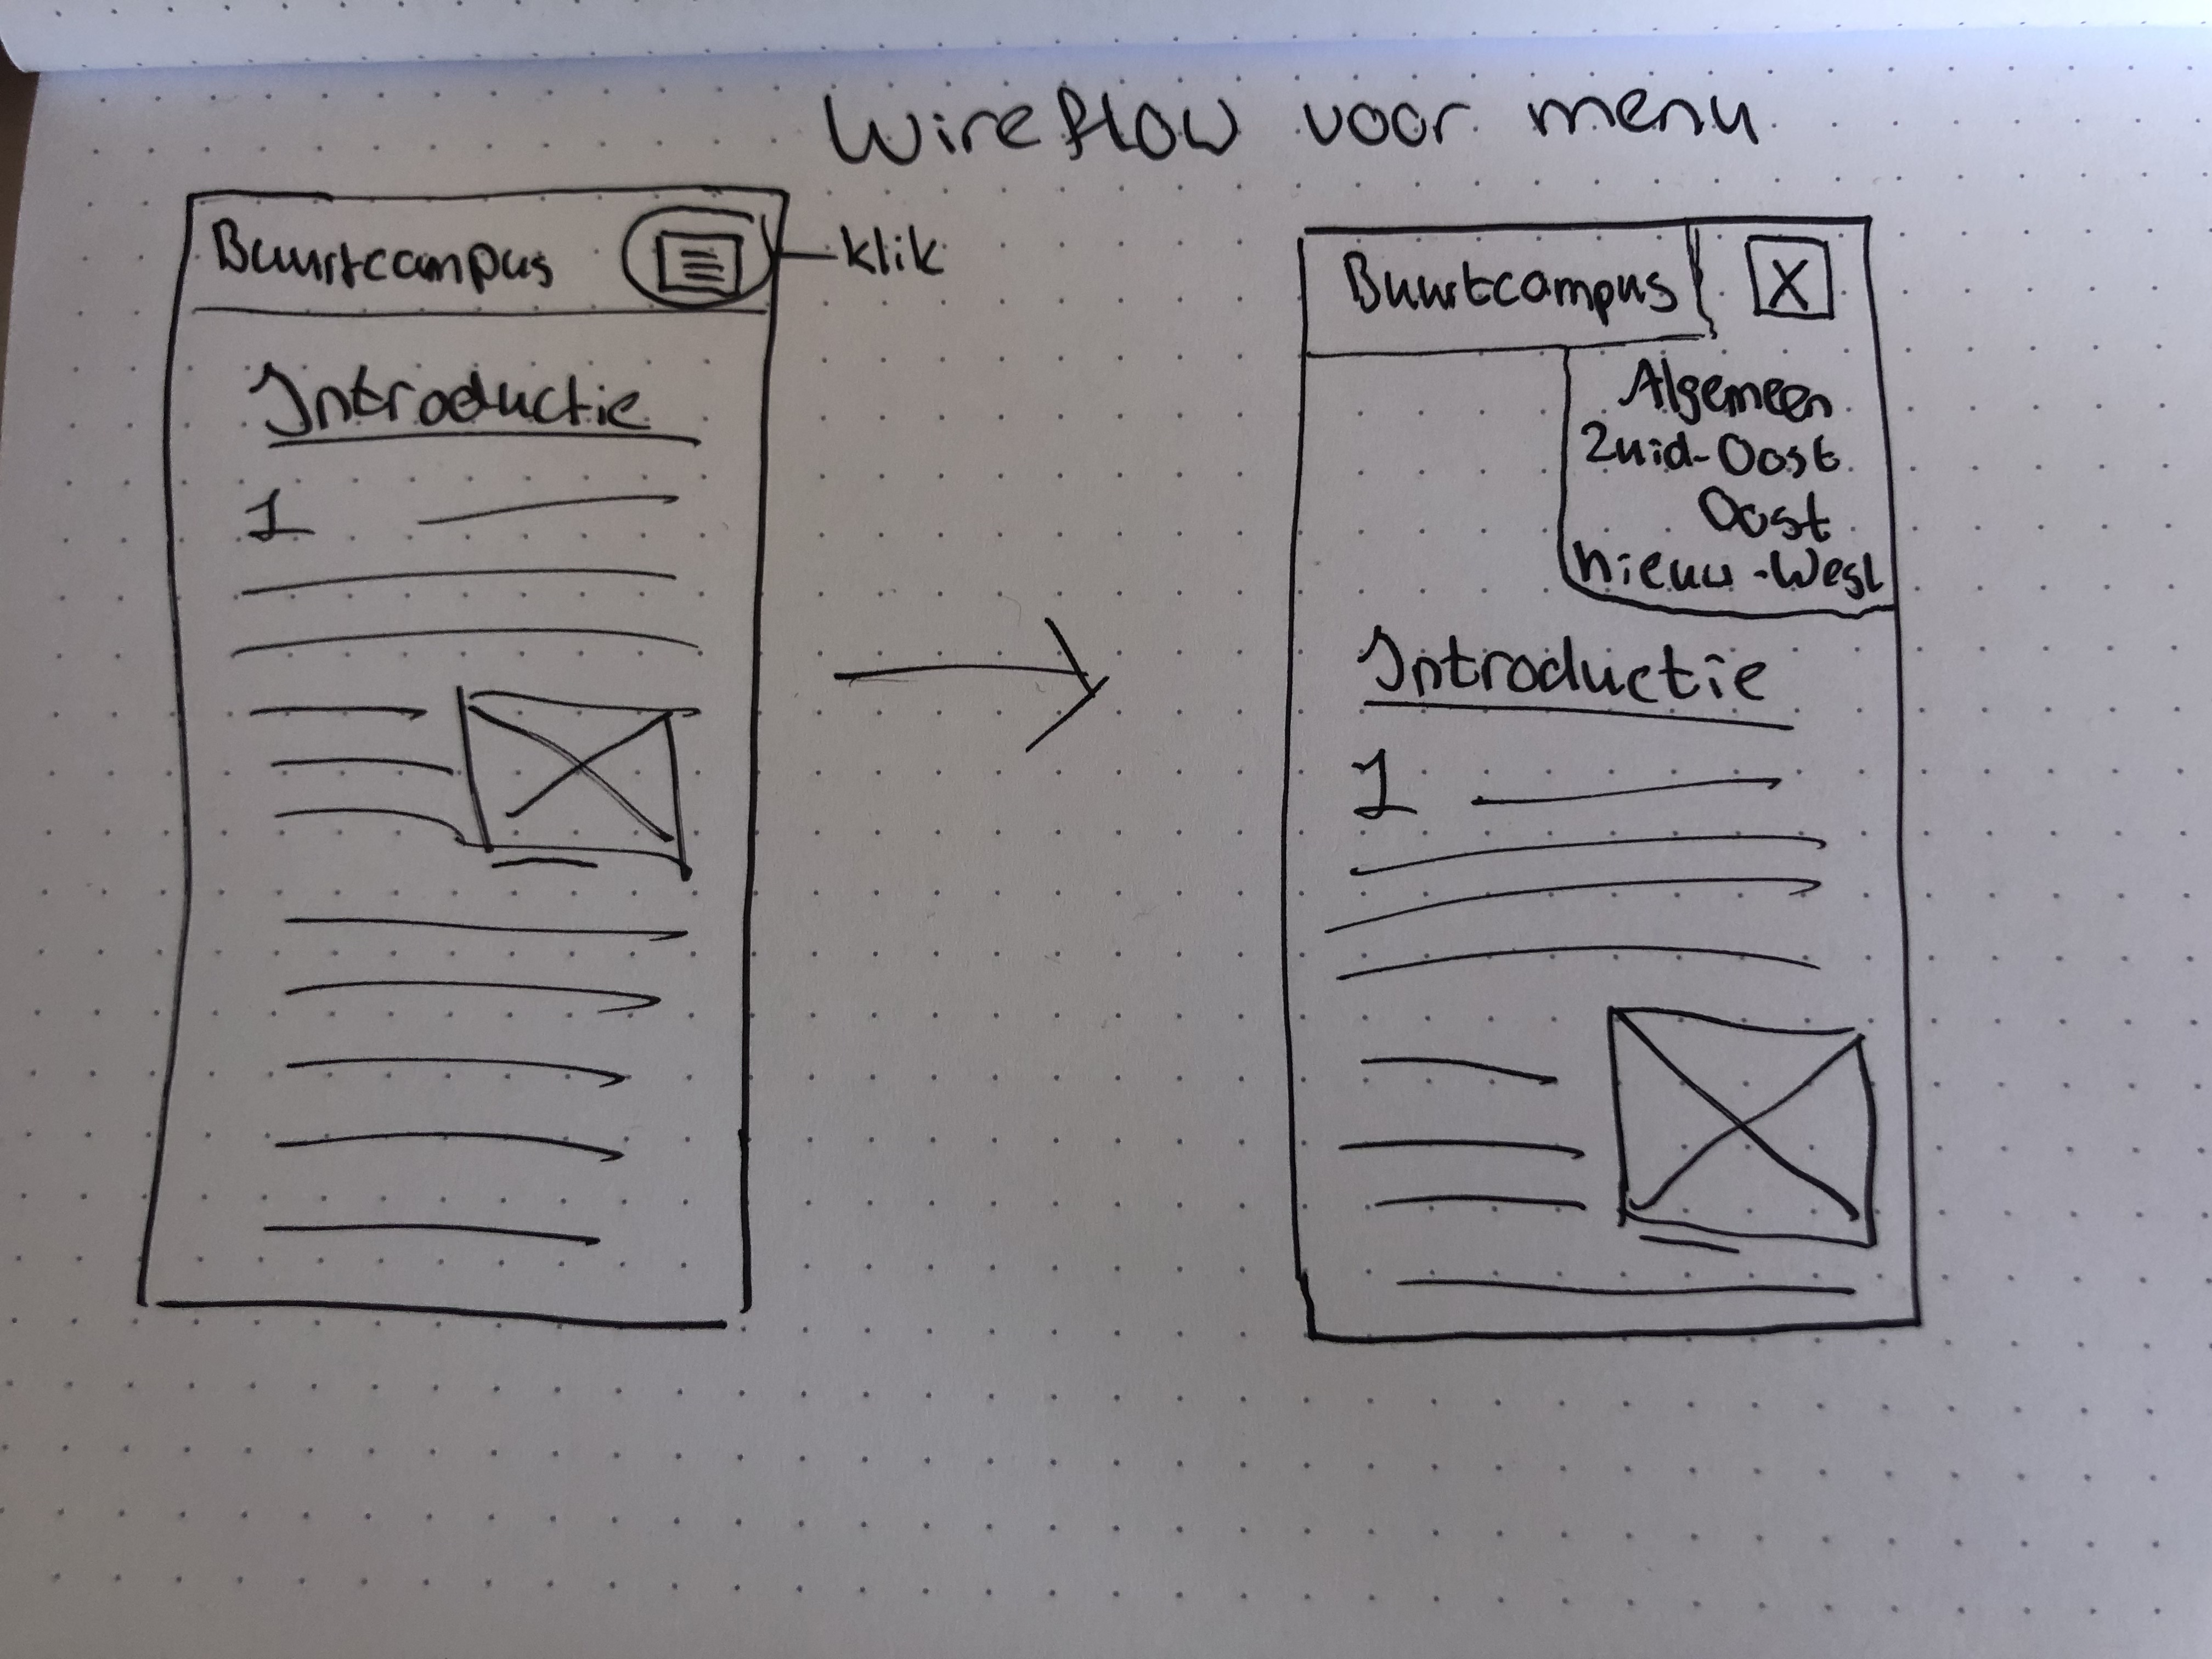 Wireflow voor menu
Buurtcampus
klik
Introductie
1
Buurtcampus X
Algemeen
Zuid-Oost
Oost
Nieuw-West
Introductie
1